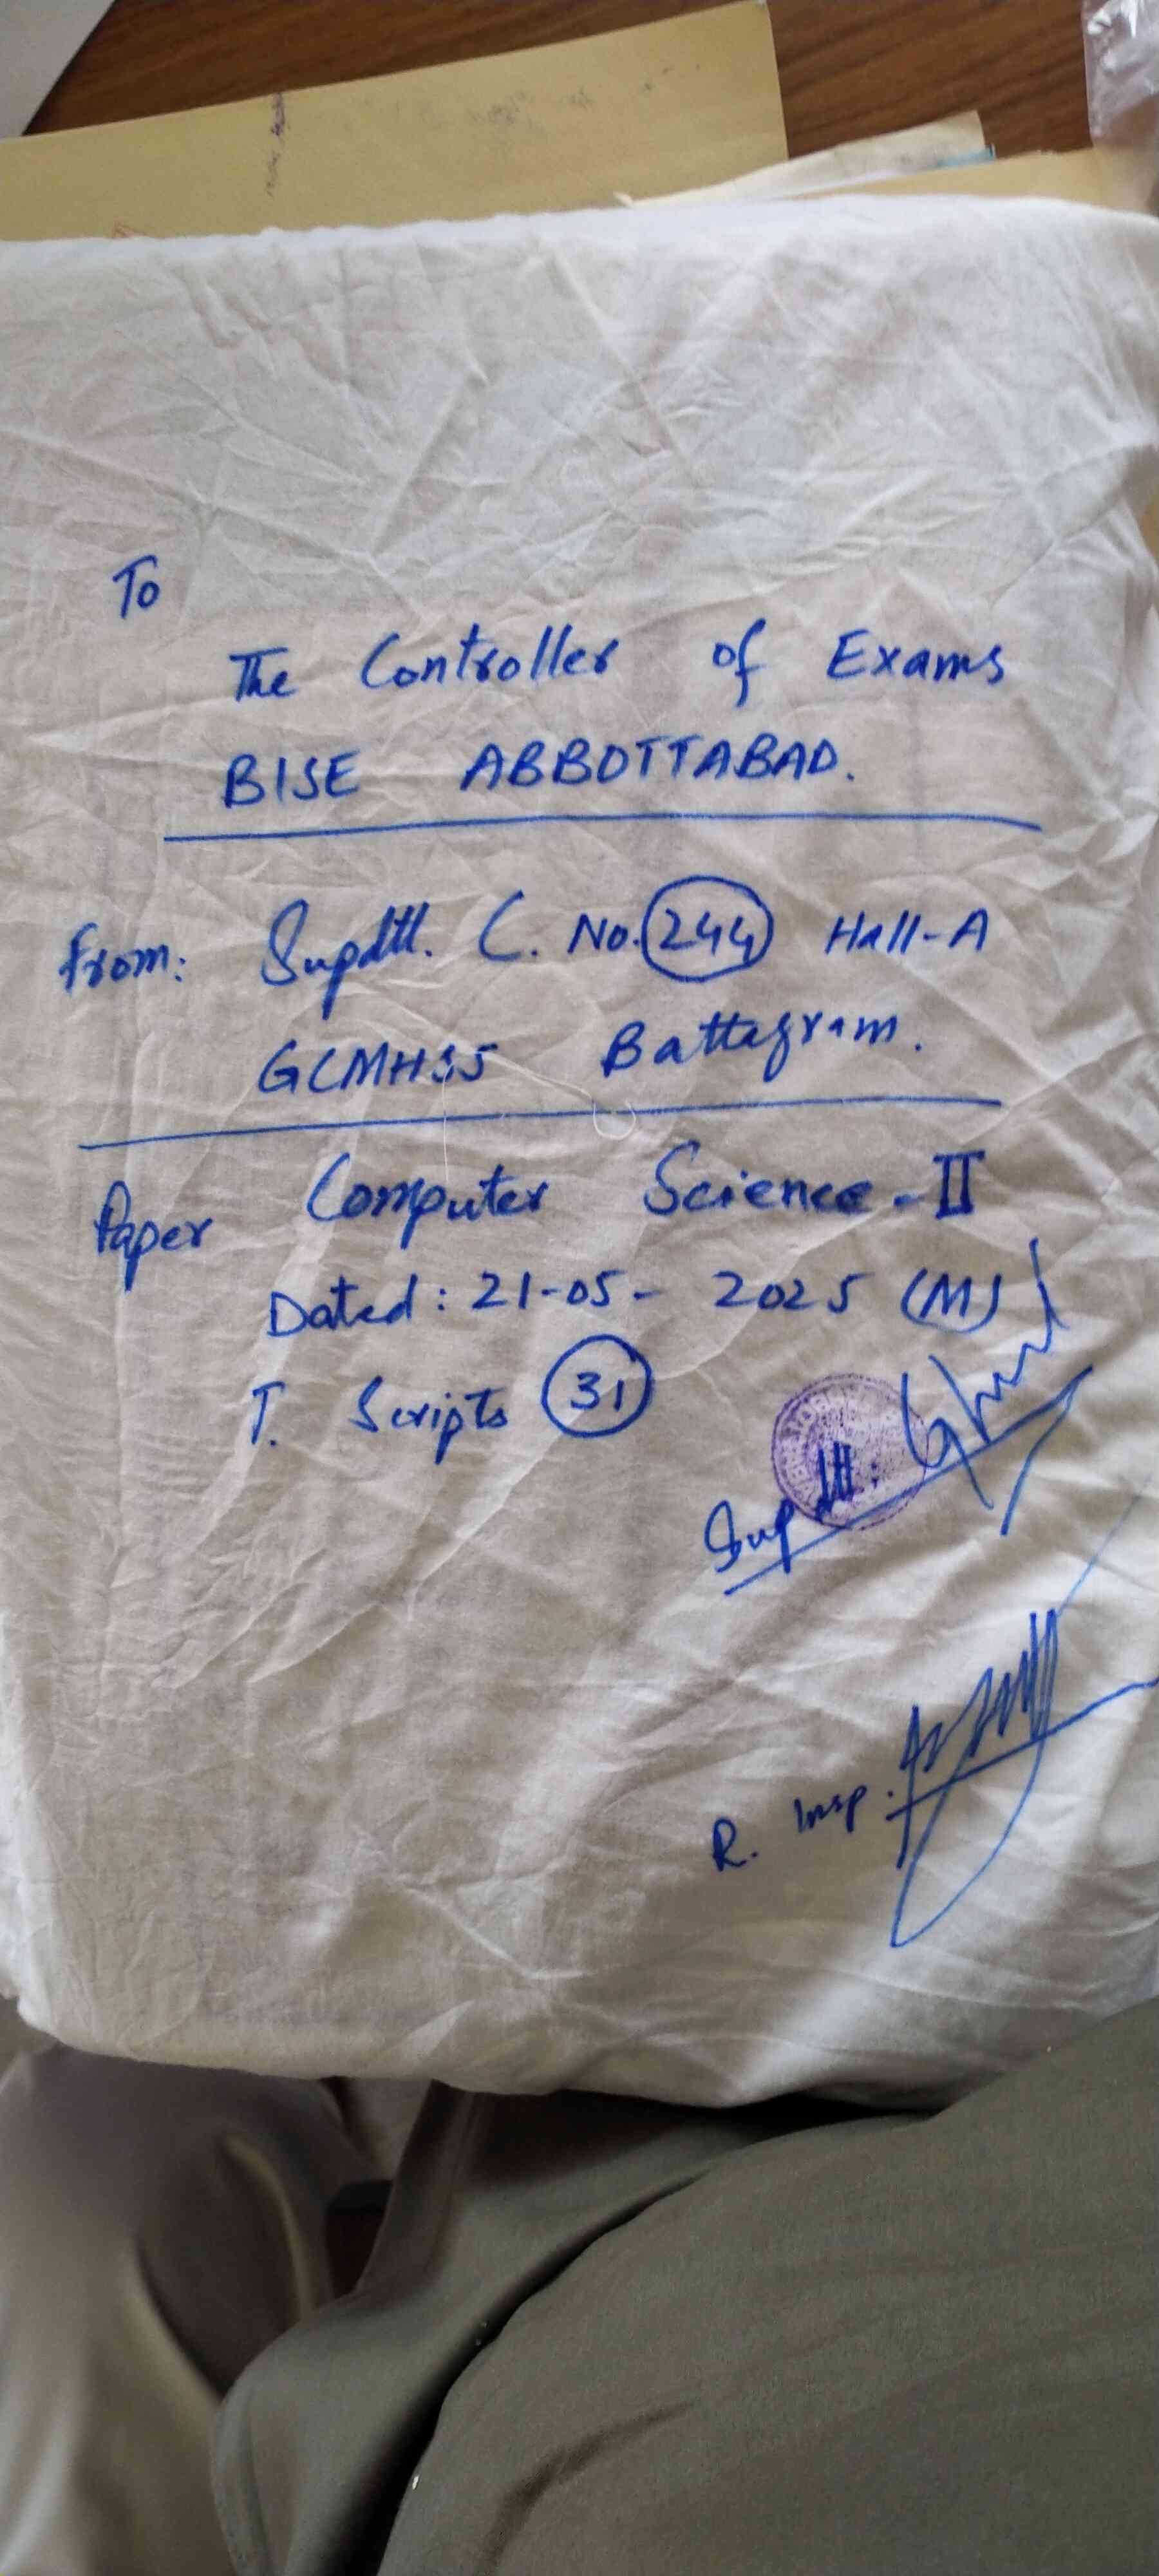 To
The Controller of Exams
BISE ABBOTTABAD.
From: Supdtt. C. No. 244 Hall-A
GCMHSS Battagram.
Paper Computer Science-II
Dated: 21-05-2025 (M)
T. Scripts 31
Supdtt:
R. Insp.